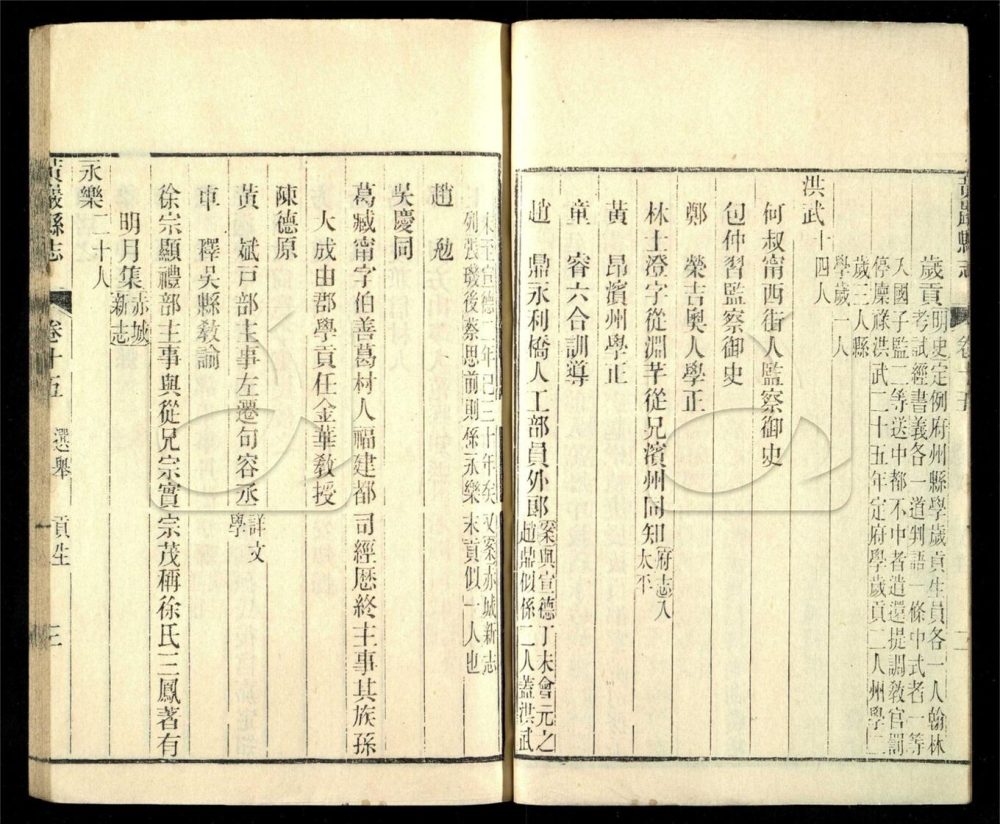 黃巖縣志
卷十五
歲貢明史定例府州縣學歲貢生員各一人翰林
考試經書義各一道判語一條中式者一等
入國子監二等送中都不中者遣還提調教官罰
停廩祿洪武二十五年定府學歲貢二人州學二
歲三人縣
學歲一人
洪武十四人
何叔甯西街人監察御史
包仲習監察御史
鄭　榮吉奧人學正
林士澄字從淵芊從兄濱州同知府志入
太平
黃　昂濱州學正
童　睿六合訓導
趙　鼎永利橋人工部員外郎案與宣德丁未會元之
趙鼎似係二人蓋洪武
末至宣德二年已三十年矣又案赤城新志
列張璣後蔡思前則係永樂末貢似一人也
趙　勉
吳慶同
葛臧甯字伯善葛村人福建都司經歷終主事其族孫
大成由郡學貢任金華教授
陳德原
黃　斌戸部主事左遷句容丞詳文
學
車　釋吳縣教諭
徐宗顯禮部主事與從兄宗實宗茂稱徐氏三鳳著有
明月集赤城
新志
永樂二十人
黃巖縣志
卷十五　選舉　貢生
三